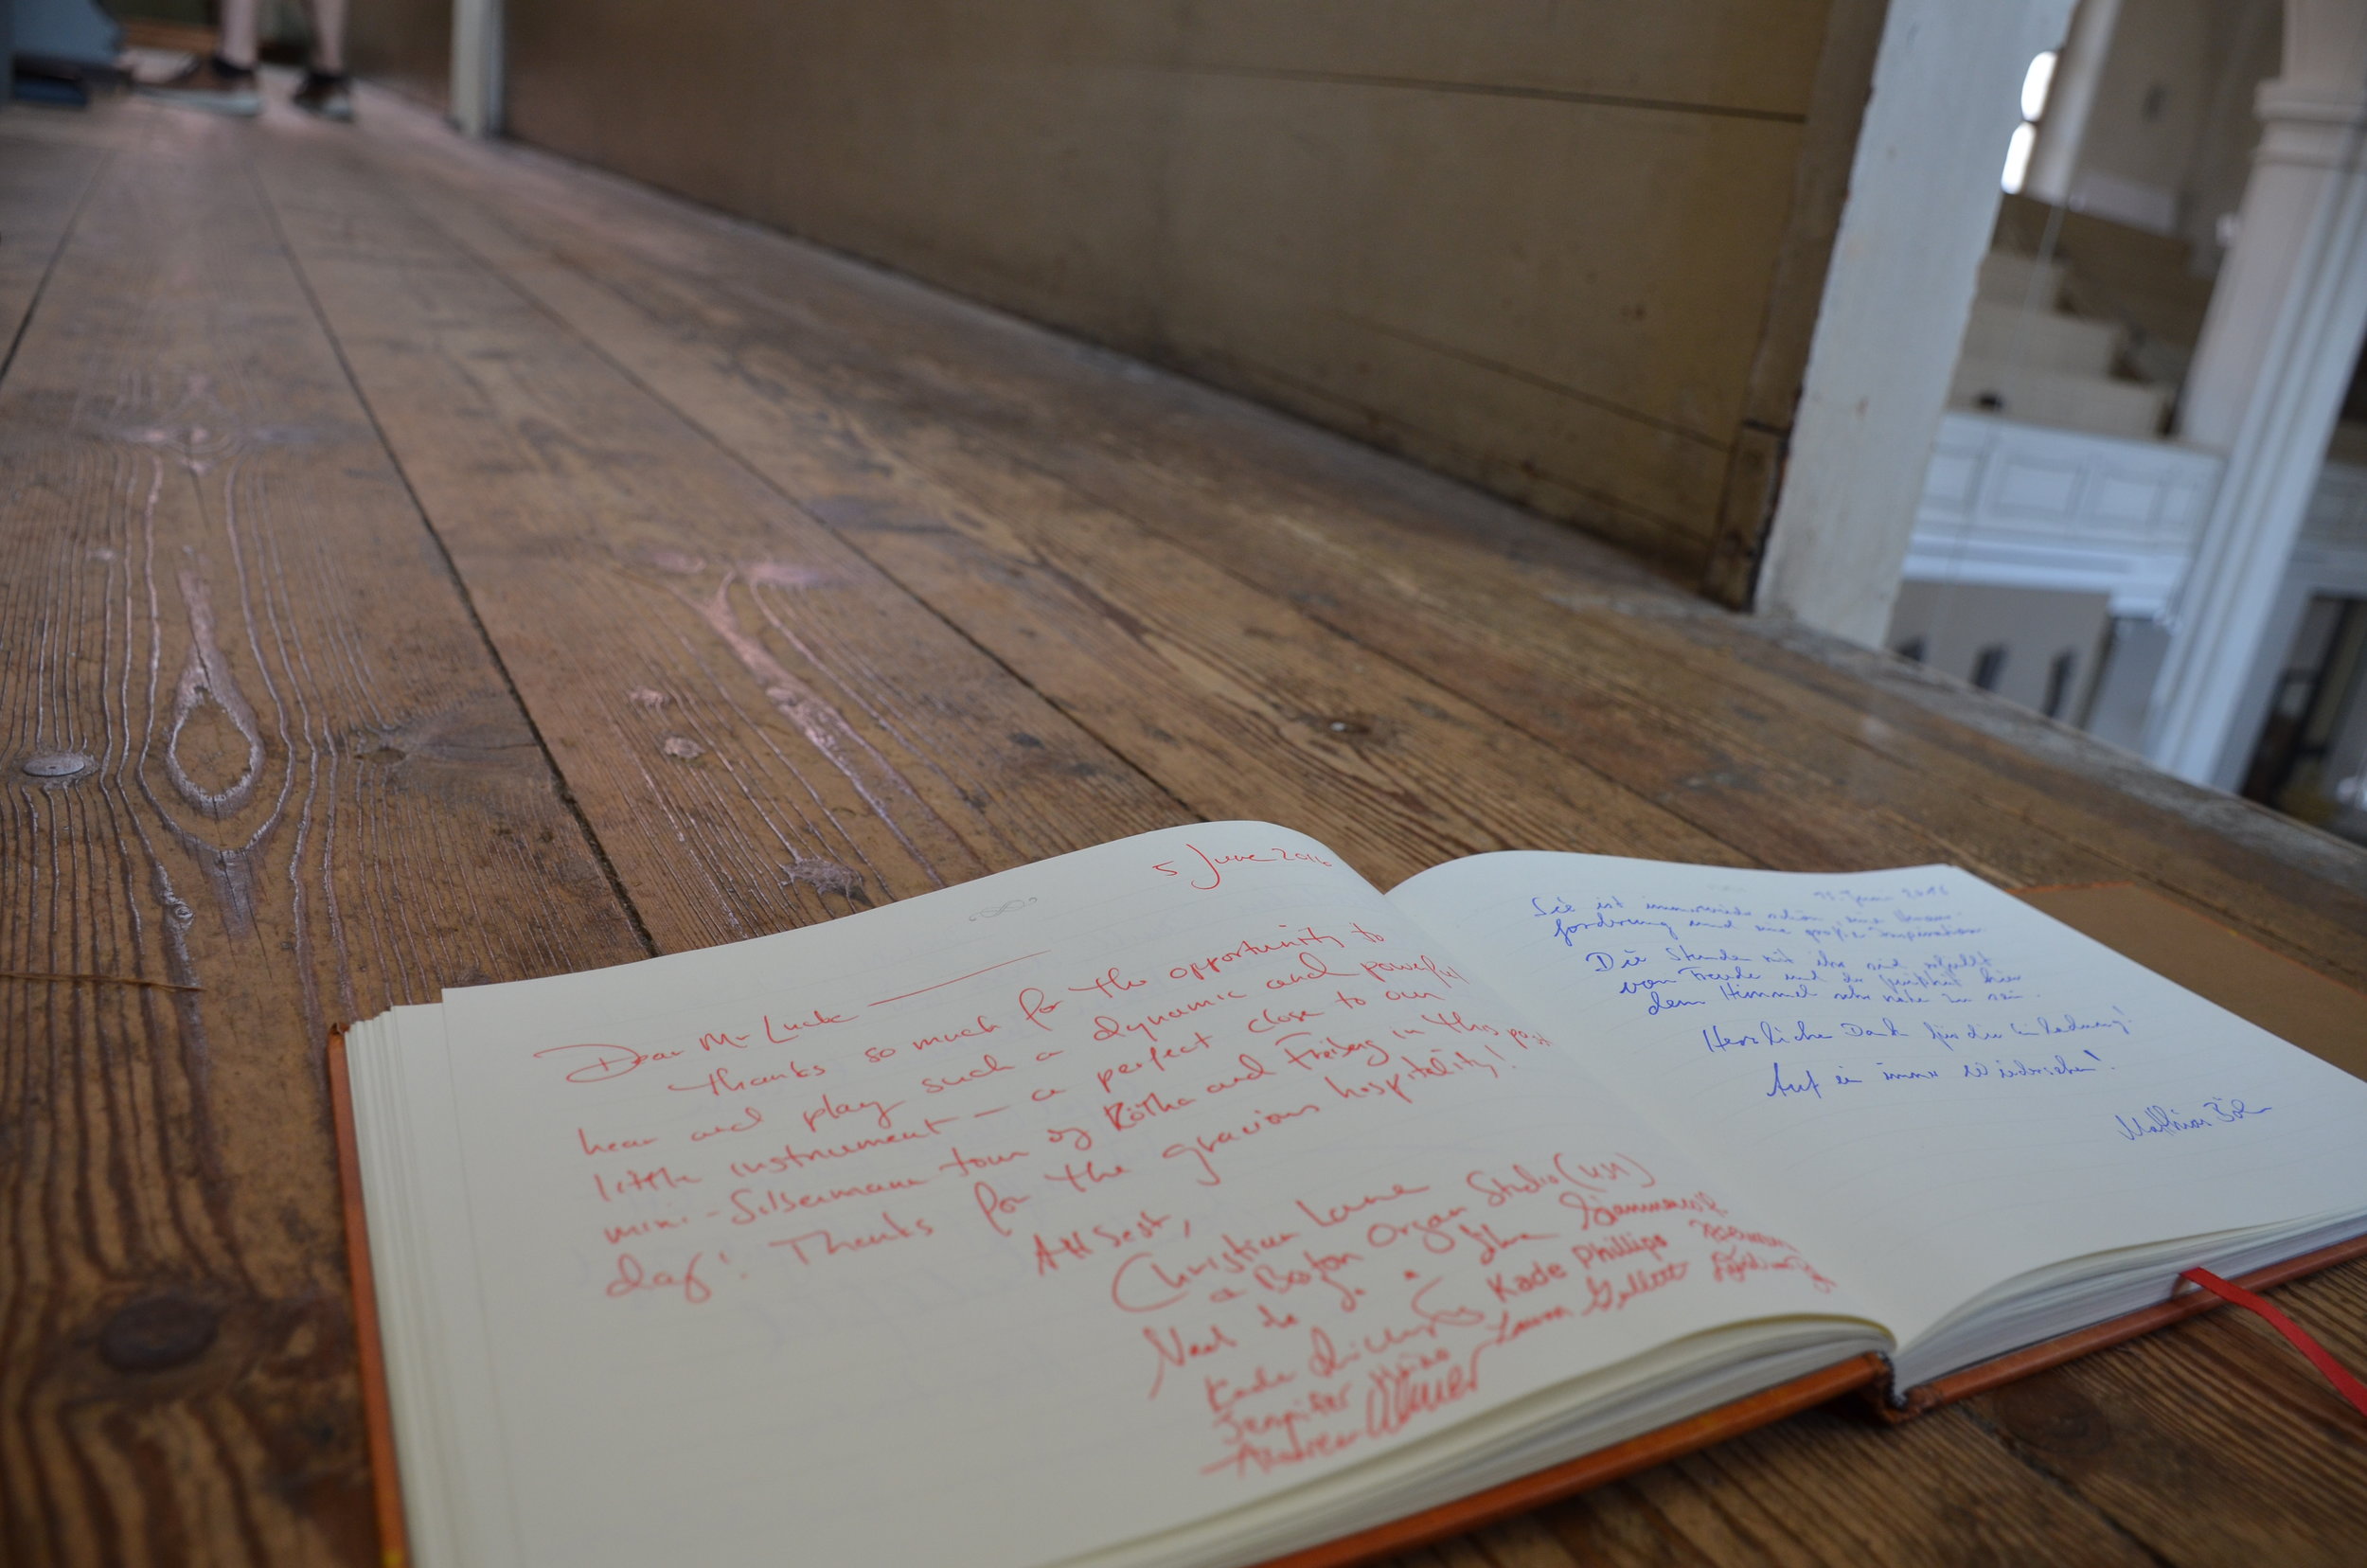 5 June 2016
Dear Mr Lucke
Thanks so much for the opportunity to
hear and play such a dynamic and powerful
little instrument — a perfect close to our
mini-Silbermann tour of Rötha and Freiberg in this past
day! Thanks for the gracious hospitality!
All best,
Christian Lane
a Boston Organ Studio (USA)
Kade Phillips
Laura Gullett
Jennifer Hsiao
Andrew
Juni 2016
Sie ist immer wieder schön, eine Heraus-
forderung und eine große Inspiration
Die Stunden mit ihr sind erfüllt
von Freude und
dem Himmel sehr nahe zu sein.
Herzlichen Dank für die Einladung!
Auf ein immer Wiedersehen!
Matthias